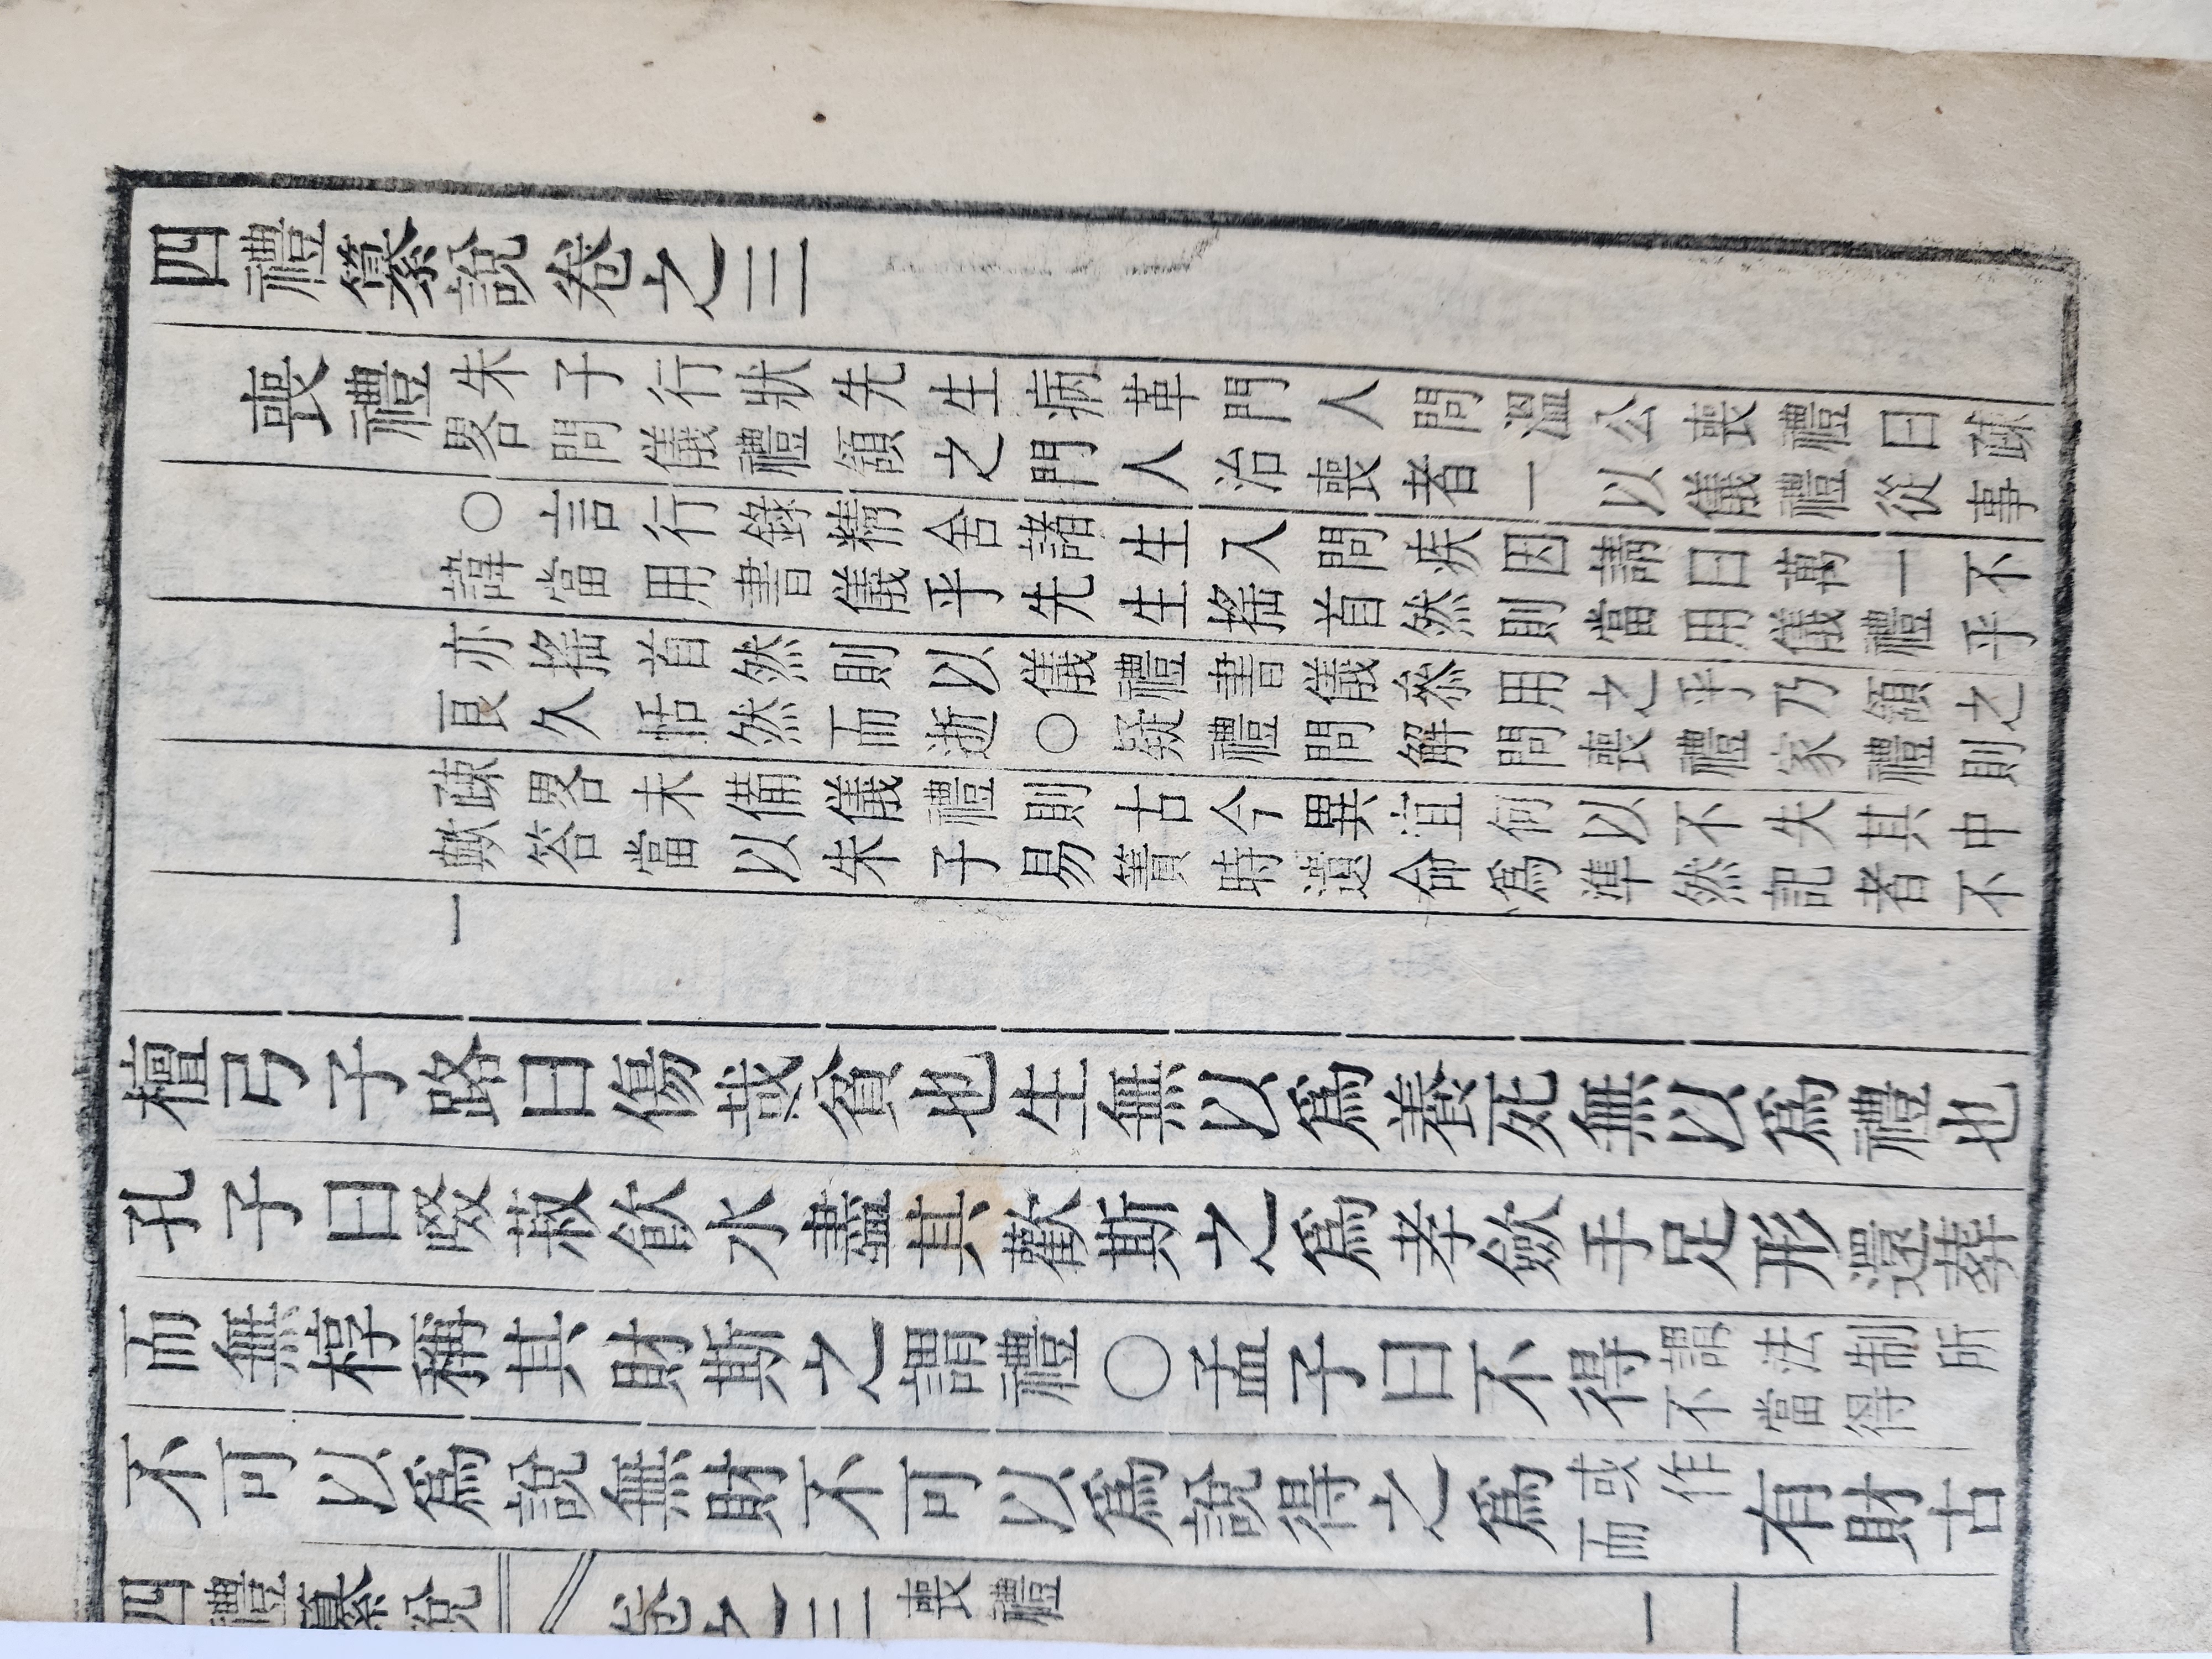 四禮纂說卷之三
喪禮
朱子行狀先生病革門人問溫公喪禮曰疎
畧問儀禮頷之門人治喪者一以儀禮從事
○言行錄精舍諸生入問疾因請曰萬一不
諱當用書儀乎先生搖首然則當用儀禮乎
亦搖首然則以儀禮書儀參用之乎乃頷之
良久恬然而逝○疑禮問解問喪禮家禮則
疎畧未備儀禮則古今異宜何以不失其中
歟答當以朱子易簀時遺命爲準然記者不
一
檀弓子路曰傷哉貧也生無以爲養死無以爲禮也
孔子曰啜菽飮水盡其歡斯之爲孝歛手足形還葬
而無椁稱其財斯之謂禮○孟子曰不得謂法制所
不當得
不可以爲說無財不可以爲說得之爲或作
而
有財古
四禮纂說 卷之三 喪禮 一